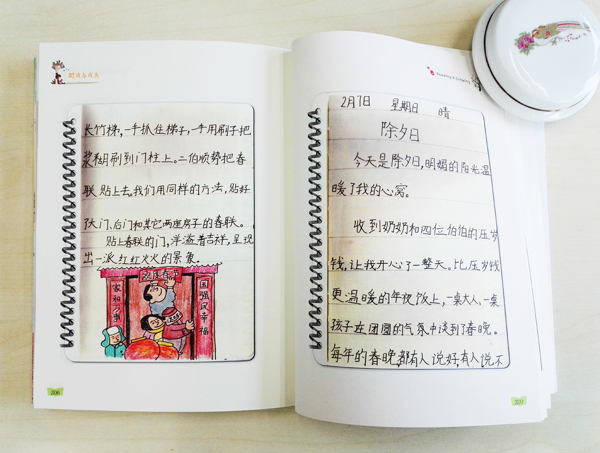 阅读与成长
长竹梯,一手抓住梯子,一手用刷子把
浆糊刷到门柱上。二伯顺势把春
联贴上去。我们用同样的方法,贴好
大门、后门和其它两座房子的春联。
贴上春联的门,洋溢着吉祥,呈现
出一派红红火火的景象。
欢度春节
家和万事
国强民幸福
206
Reading & Growing
2月7日 星期日 晴
除夕日
今天是除夕日,明媚的阳光温
暖了我的心窝。
收到奶奶和四位伯伯的压岁
钱,让我开心了一整天。比压岁钱
更温暖的年夜饭上,一桌大人,一桌
孩子在团圆的气氛中谈到了春晚。
每年的春晚,都有人说好,有人说不
207